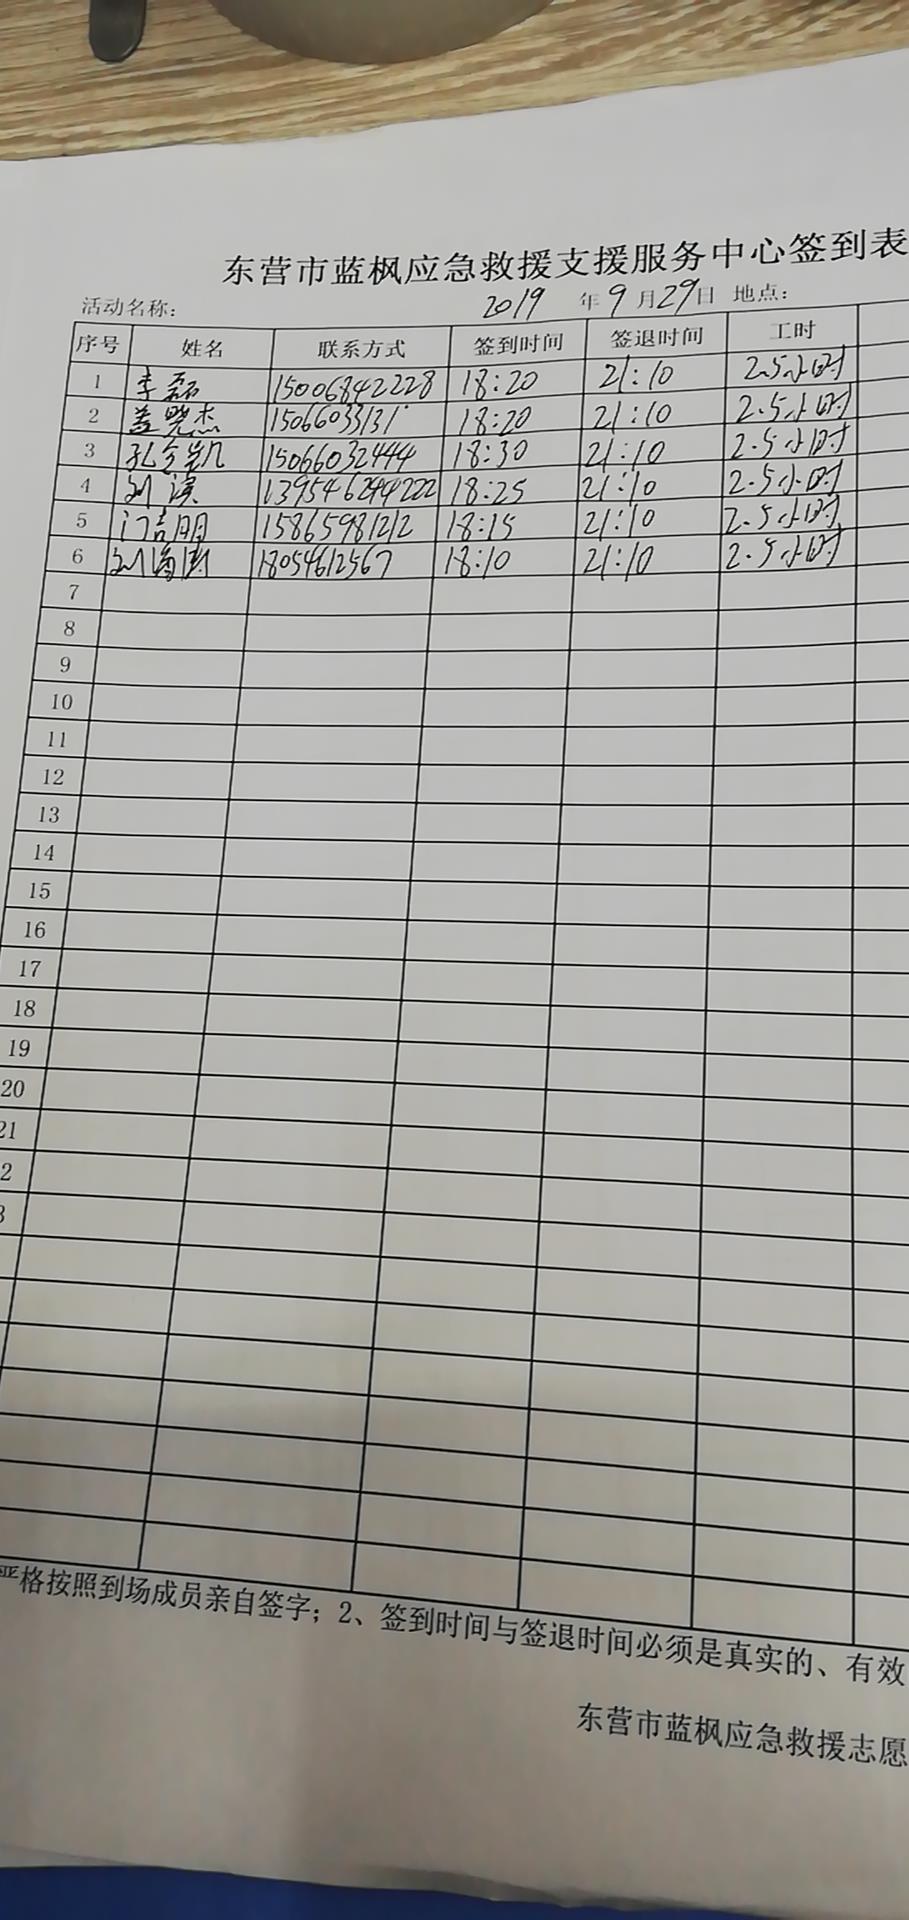 东营市蓝枫应急救援支援服务中心签到表
活动名称: 2019 年 9 月 29 日 地点:
序号 姓名 联系方式 签到时间 签退时间 工时
1 李磊 15006842228 18:20 21:10 2.5小时
2 盖晓杰 18:20 21:10 2.5小时
3 孔令凯 15066032444 18:30 21:10 2.5小时
4 刘滨 18:25 21:10 2.5小时
5 门吉明 15865981212 18:15 21:10 2.5小时
6 18054612567 18:10 21:10 2.5小时
7
8
9
10
11
12
13
14
15
16
17
18
19
20
21
2
3
严格按照到场成员亲自签字；2、签到时间与签退时间必须是真实的、有效
东营市蓝枫应急救援志愿